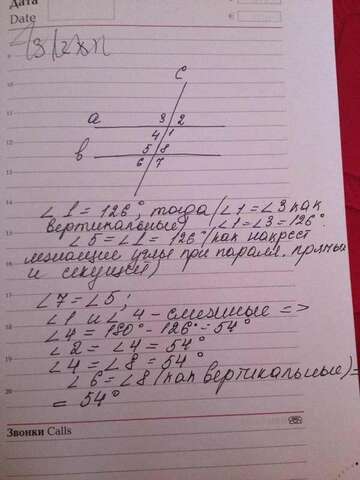 Дата
Date
c
a
3 2
4 1
b
5 8
6 7
∠1 = 126°, тогда (∠1 = ∠3 как
вертикальные) ∠1 = ∠3 = 126°.
∠5 = ∠1 = 126° (как накрест
лежащие углы при паралл. прямых
и секущей)
∠7 = ∠5;
∠1 и ∠4 – смежные =>
∠4 = 180° - 126° = 54°
∠2 = ∠4 = 54°
∠4 = ∠8 = 54°
∠6 = ∠8 (как вертикальные) =
= 54°
Звонки Calls